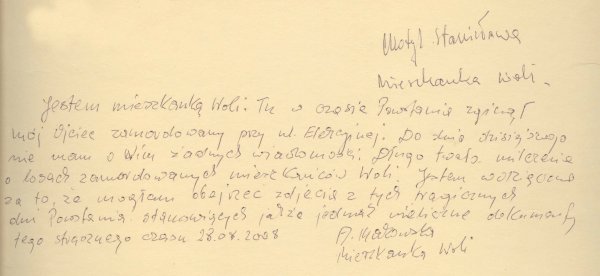 Motyl Stanisława
Mieszkanka Woli.
Jestem mieszkanką Woli. Tu w czasie Powstania zginął
mój Ojciec zamordowany przy ul. Elekcyjnej. Do dnia dzisiejszego
nie mam o Nim żadnych wiadomości. Długo trwało milczenie
o losach zamordowanych mieszkańców Woli. Jestem wdzięczna
za to, że mogłam obejrzeć zdjęcia z tych tragicznych
dni Powstania stanowiących jakże jednak nieliczne dokumenty
tego strasznego czasu 28.08.2008
Mieszkanka Woli